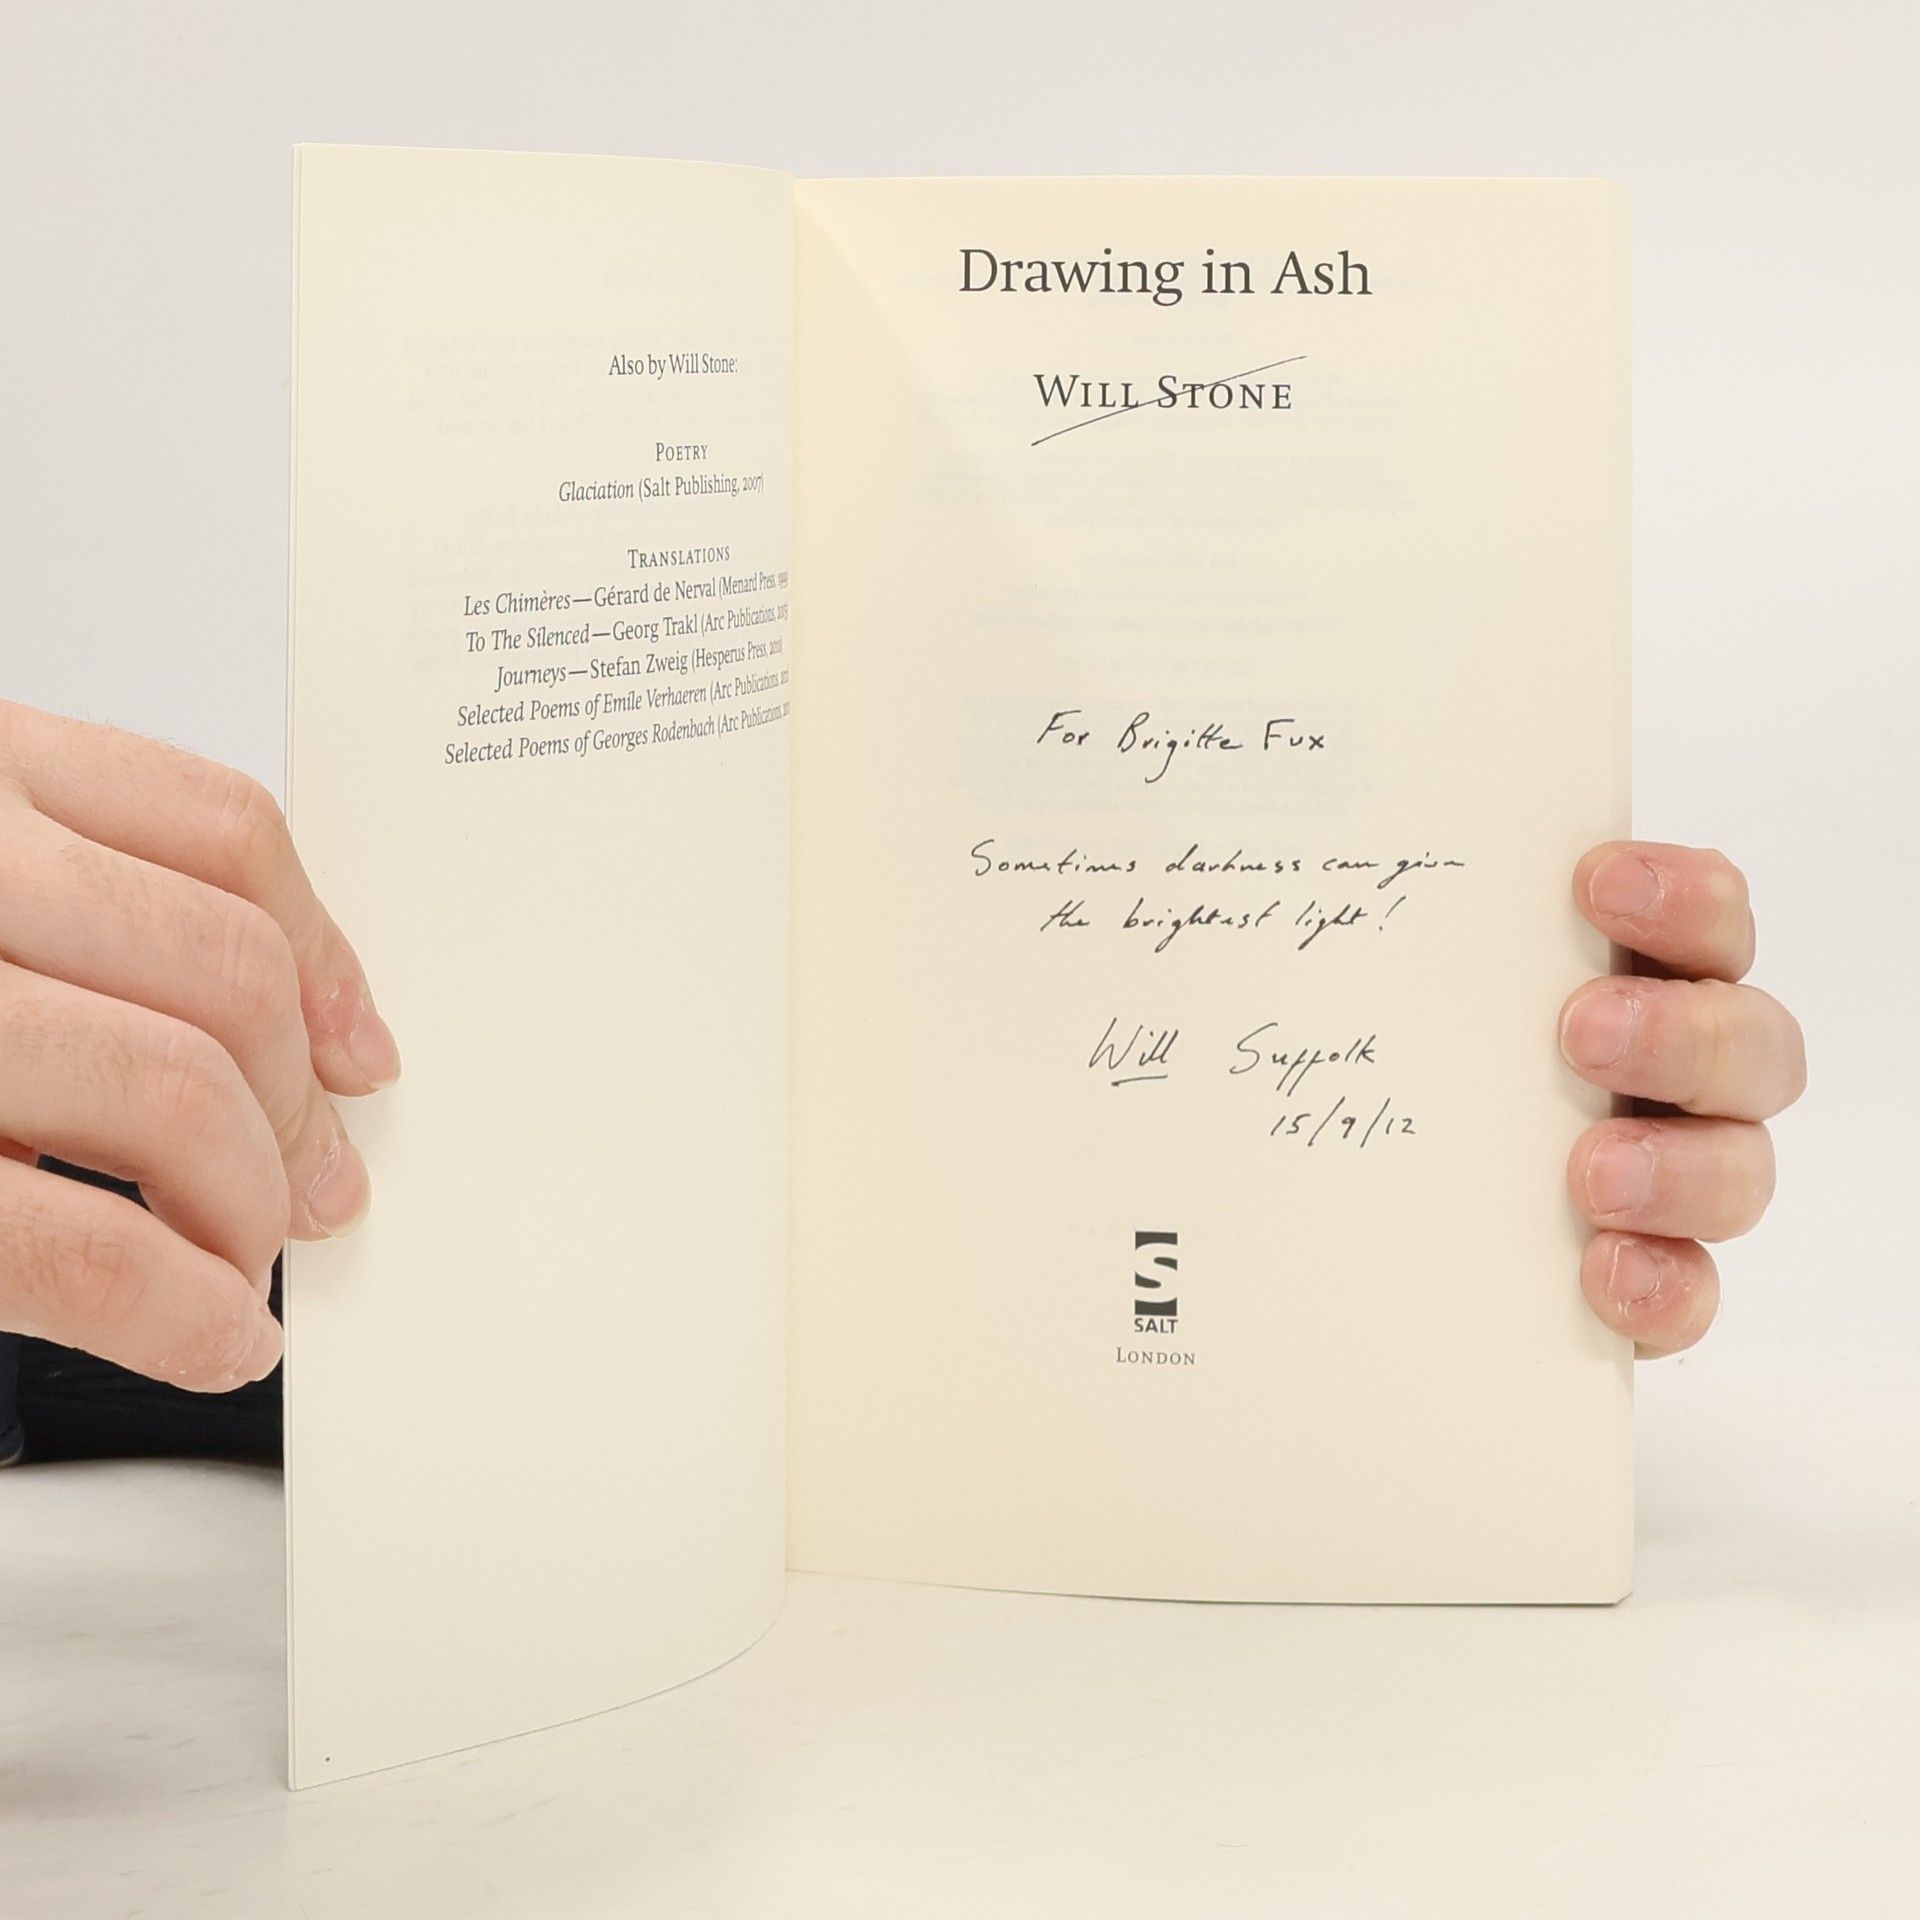 Also by Will Stone:
POETRY
Glaciation (Salt Publishing, 2007)
TRANSLATIONS
Les Chimères—Gérard de Nerval (Menard Press, 1999
To The Silenced—Georg Trakl (Arc Publications,
Journeys—Stefan Zweig (Hesperus Press, 2010)
Selected Poems of Emile Verhaeren (Arc Publications,
Selected Poems of Georges Rodenbach (Arc Publications,
Drawing in Ash
WILL STONE
For Brigitte Fux
Sometimes darkness can give
the brightest light!
Will Suffolk
15/9/12
SALT
LONDON